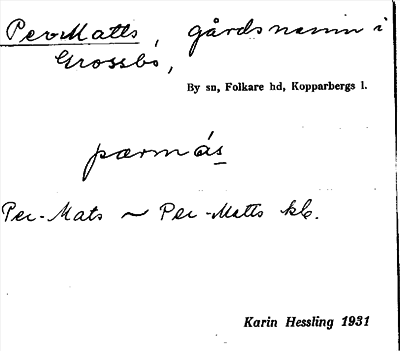 Per-Matts, gårdsnamn i
Grossbo,
By sn, Folkare hd, Kopparbergs l.
pærmás
Per-Mats ~ Per-Matts kb.
Karin Hessling 1931